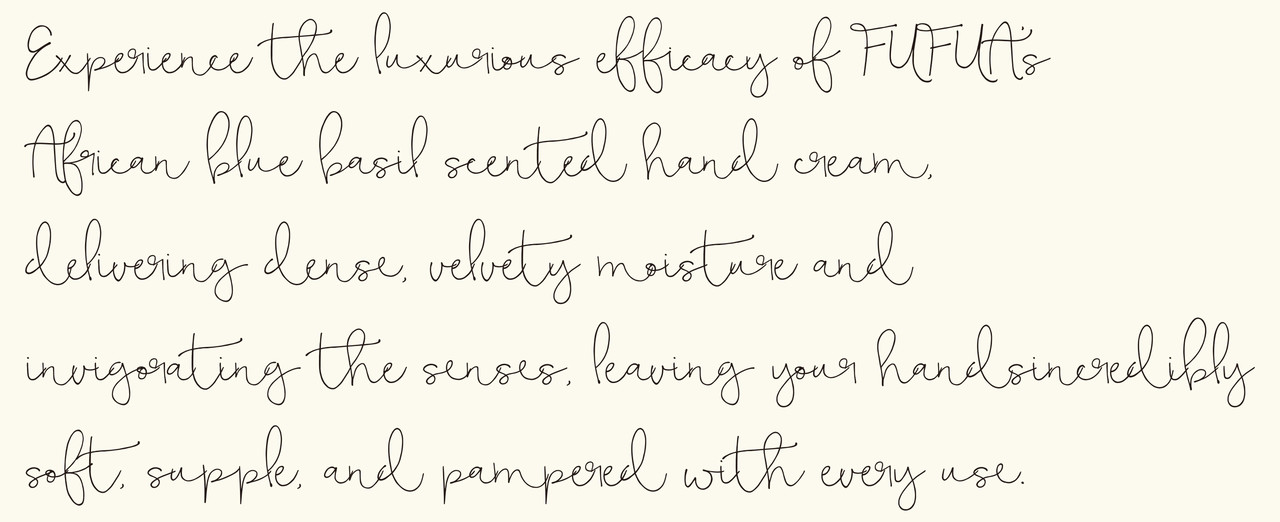 Experience the luxurious efficacy of FUFUA's
African blue basil scented hand cream,
delivering dense, velvety moisture and
invigorating the senses, leaving your handsincredibly
soft, supple, and pampered with every use.